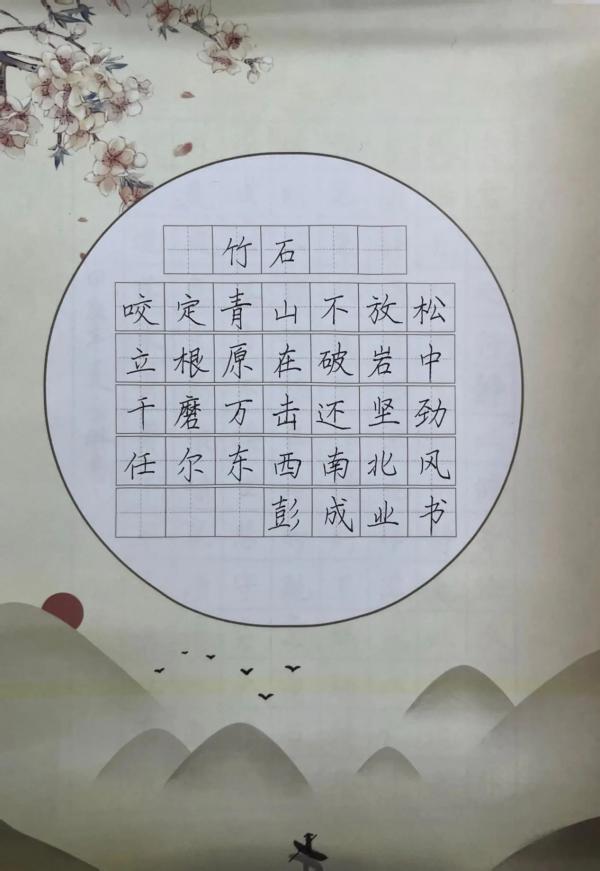 竹石
咬定青山不放松
立根原在破岩中
千磨万击还坚劲
任尔东西南北风
彭成业书